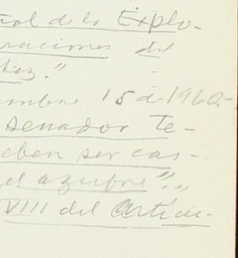 rol de la Explo-
raciones del
" 
embre 15 de 1960.-
senador Te-
eben ser cas-
el azufre".,
VIII del Artícu-